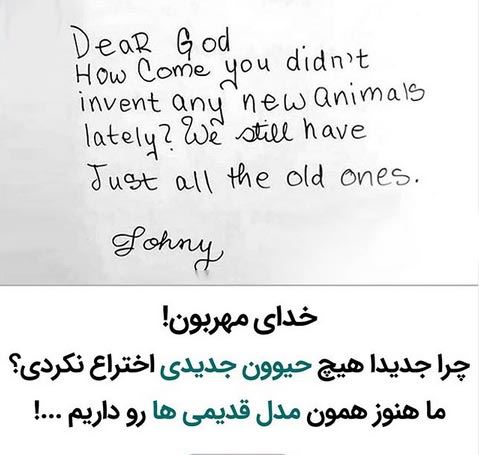 Dear God
How Come you didn't
invent any new animals
lately? We still have
Just all the old ones.
Johny
خدای مهربون!
چرا جدیدا هیچ حیوون جدیدی اختراع نکردی؟
ما هنوز همون مدل قدیمی ها رو داریم ...!